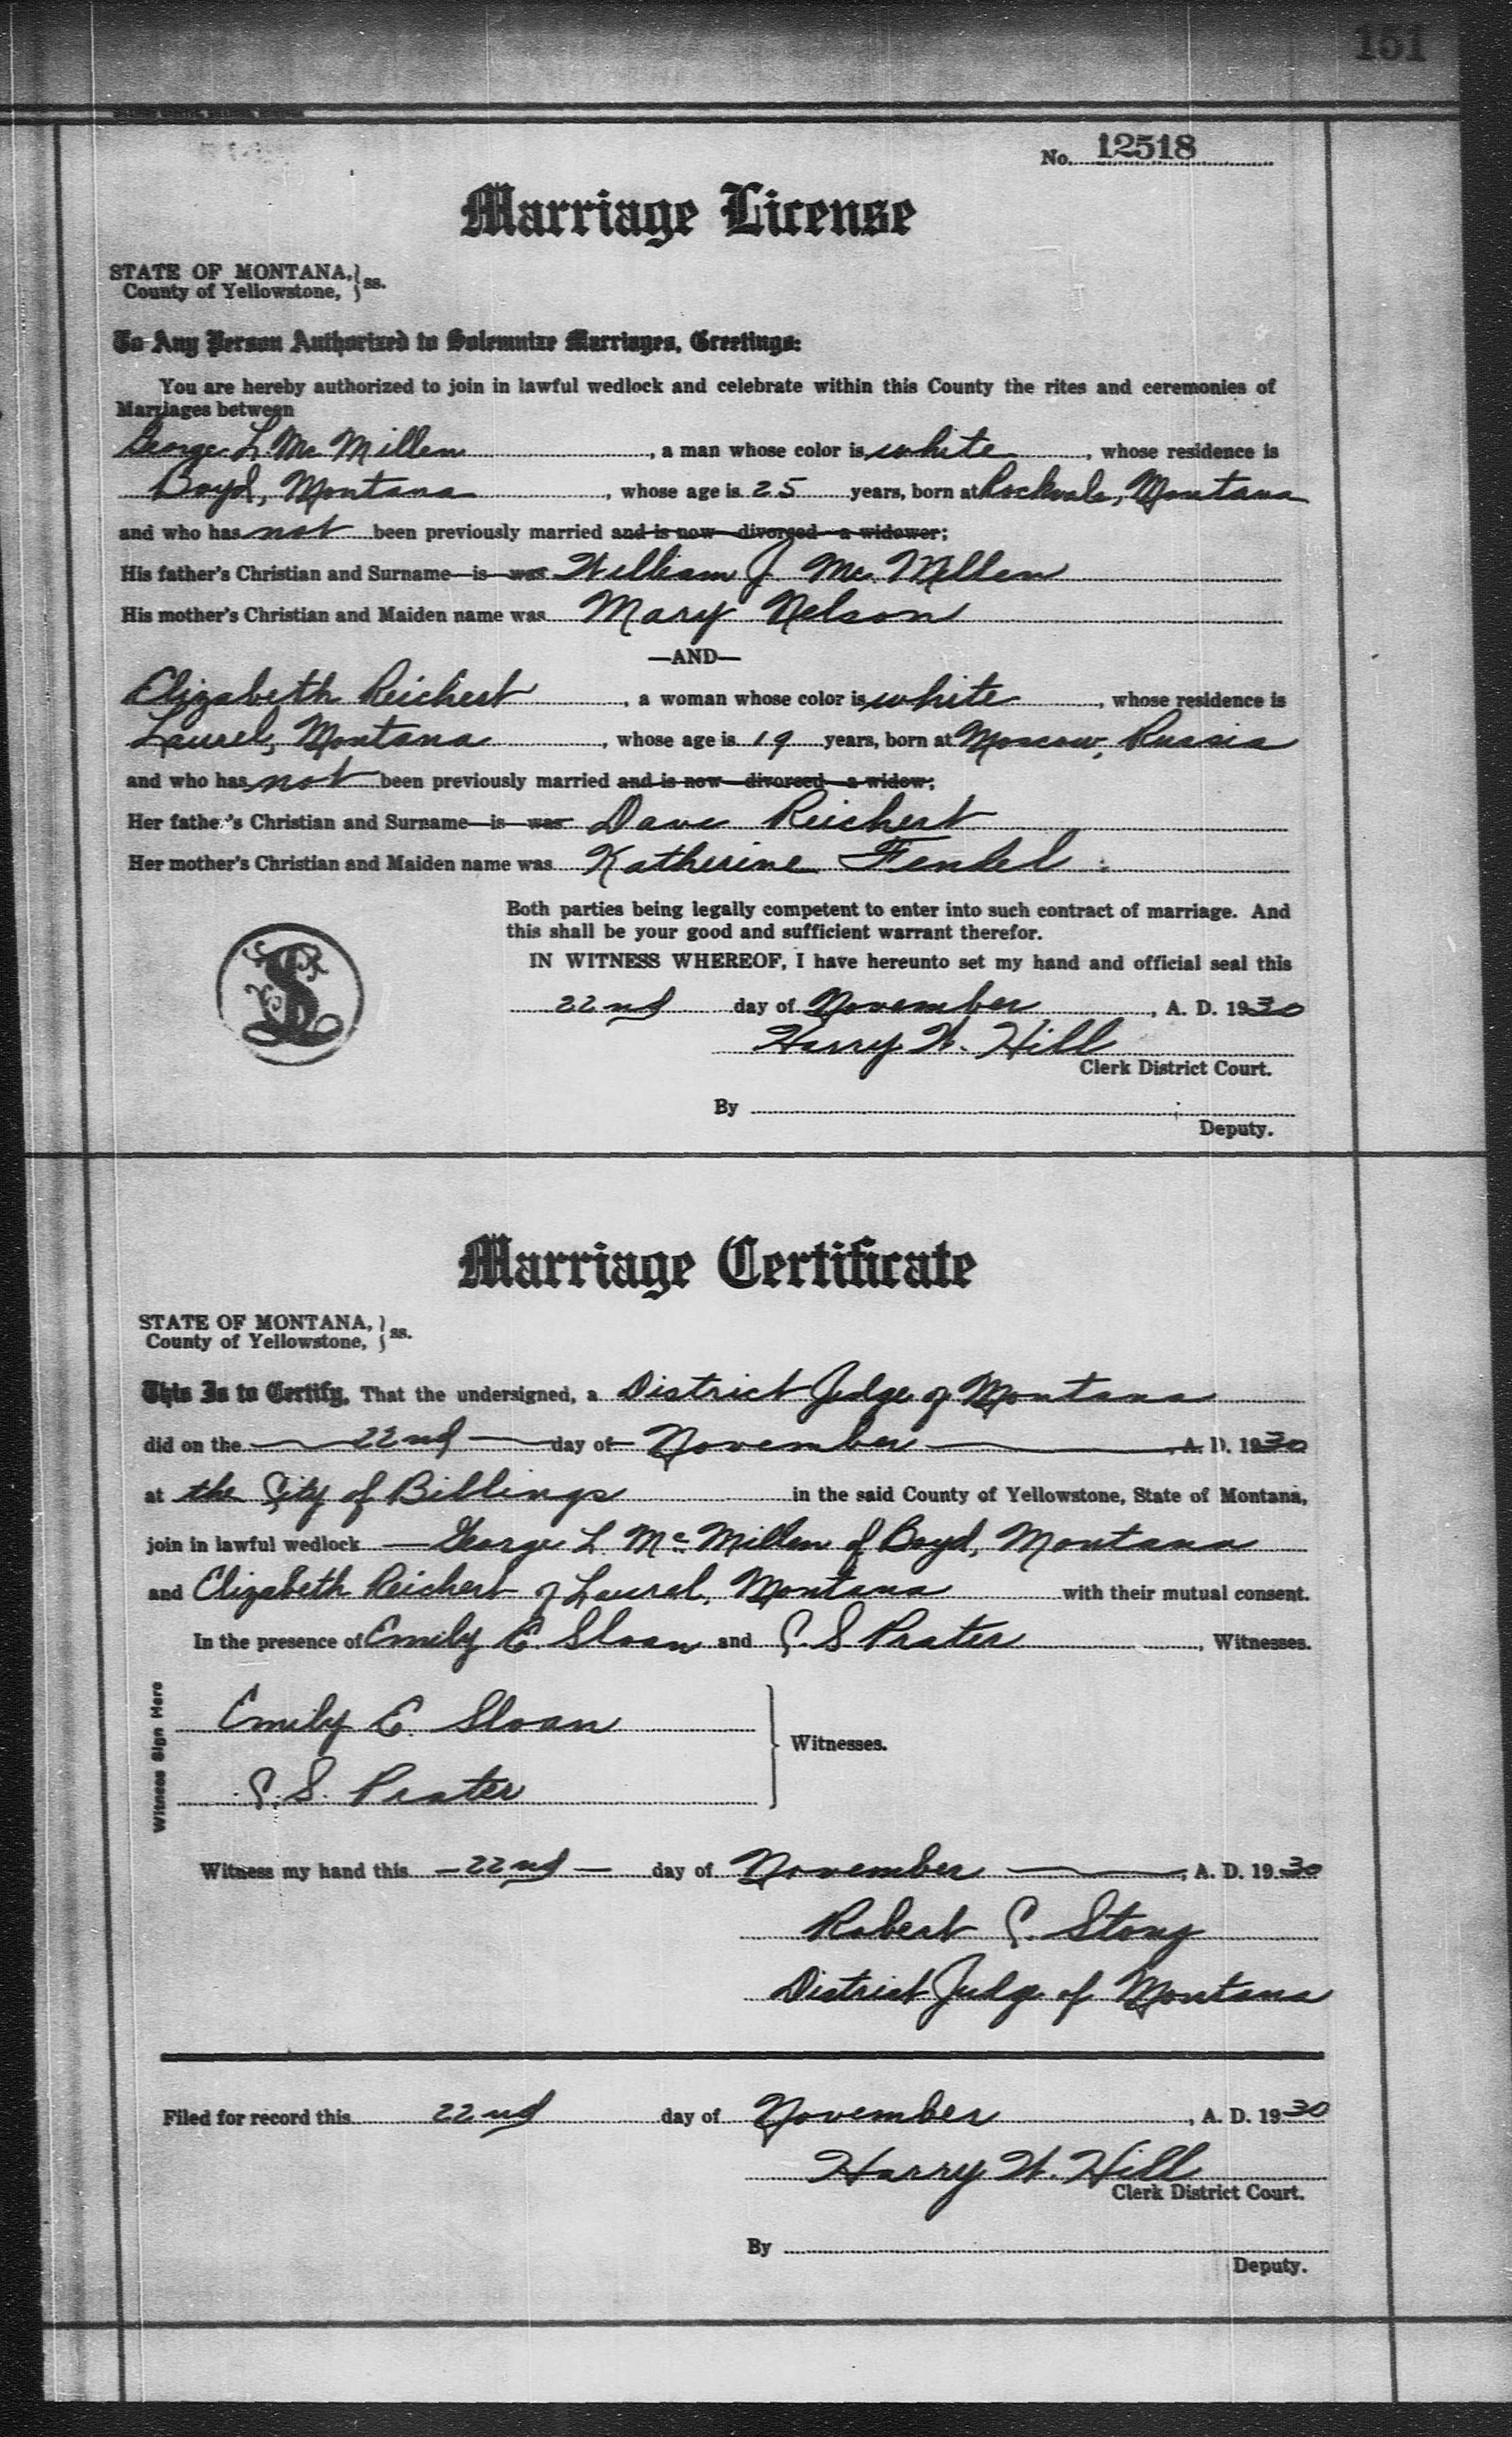 151
No. 12518
Marriage License
STATE OF MONTANA, } ss.
County of Yellowstone,
To Any Person Authorized to Solemnize Marriages, Greetings:
You are hereby authorized to join in lawful wedlock and celebrate within this County the rites and ceremonies of
Marriages between
George L. McMillen, a man whose color is white, whose residence is
Boyd, Montana, whose age is 25 years, born at Rockvale, Montana
and who has not been previously married and is now divorced a widower;
His father's Christian and Surname is was William J. McMillen
His mother's Christian and Maiden name was Mary Nelson
—AND—
Elizabeth Reichert, a woman whose color is white, whose residence is
Laurel, Montana, whose age is 19 years, born at Moscow, Russia
and who has not been previously married and is now divorced a widow;
Her father's Christian and Surname is was Dave Reichert
Her mother's Christian and Maiden name was Katherine Fendel
Both parties being legally competent to enter into such contract of marriage. And
this shall be your good and sufficient warrant therefor.
IN WITNESS WHEREOF, I have hereunto set my hand and official seal this
22nd day of November, A. D. 1930
Harry W. Hill
Clerk District Court.
By
Deputy.
Marriage Certificate
STATE OF MONTANA, } ss.
County of Yellowstone,
This Is to Certify, That the undersigned, a District Judge of Montana
did on the 22nd day of November, A. D. 1930
at the City of Billings in the said County of Yellowstone, State of Montana,
join in lawful wedlock George L. McMillen of Boyd, Montana
and Elizabeth Reichert of Laurel, Montana with their mutual consent.
In the presence of Emily E. Sloan and C. S. Prater, Witnesses.
Witness Sign Here
Emily E. Sloan
Witnesses.
C. S. Prater
Witness my hand this 22nd day of November, A. D. 1930
Robert C. Stong
District Judge of Montana
Filed for record this 22nd day of November, A. D. 1930
Harry W. Hill
Clerk District Court.
By
Deputy.